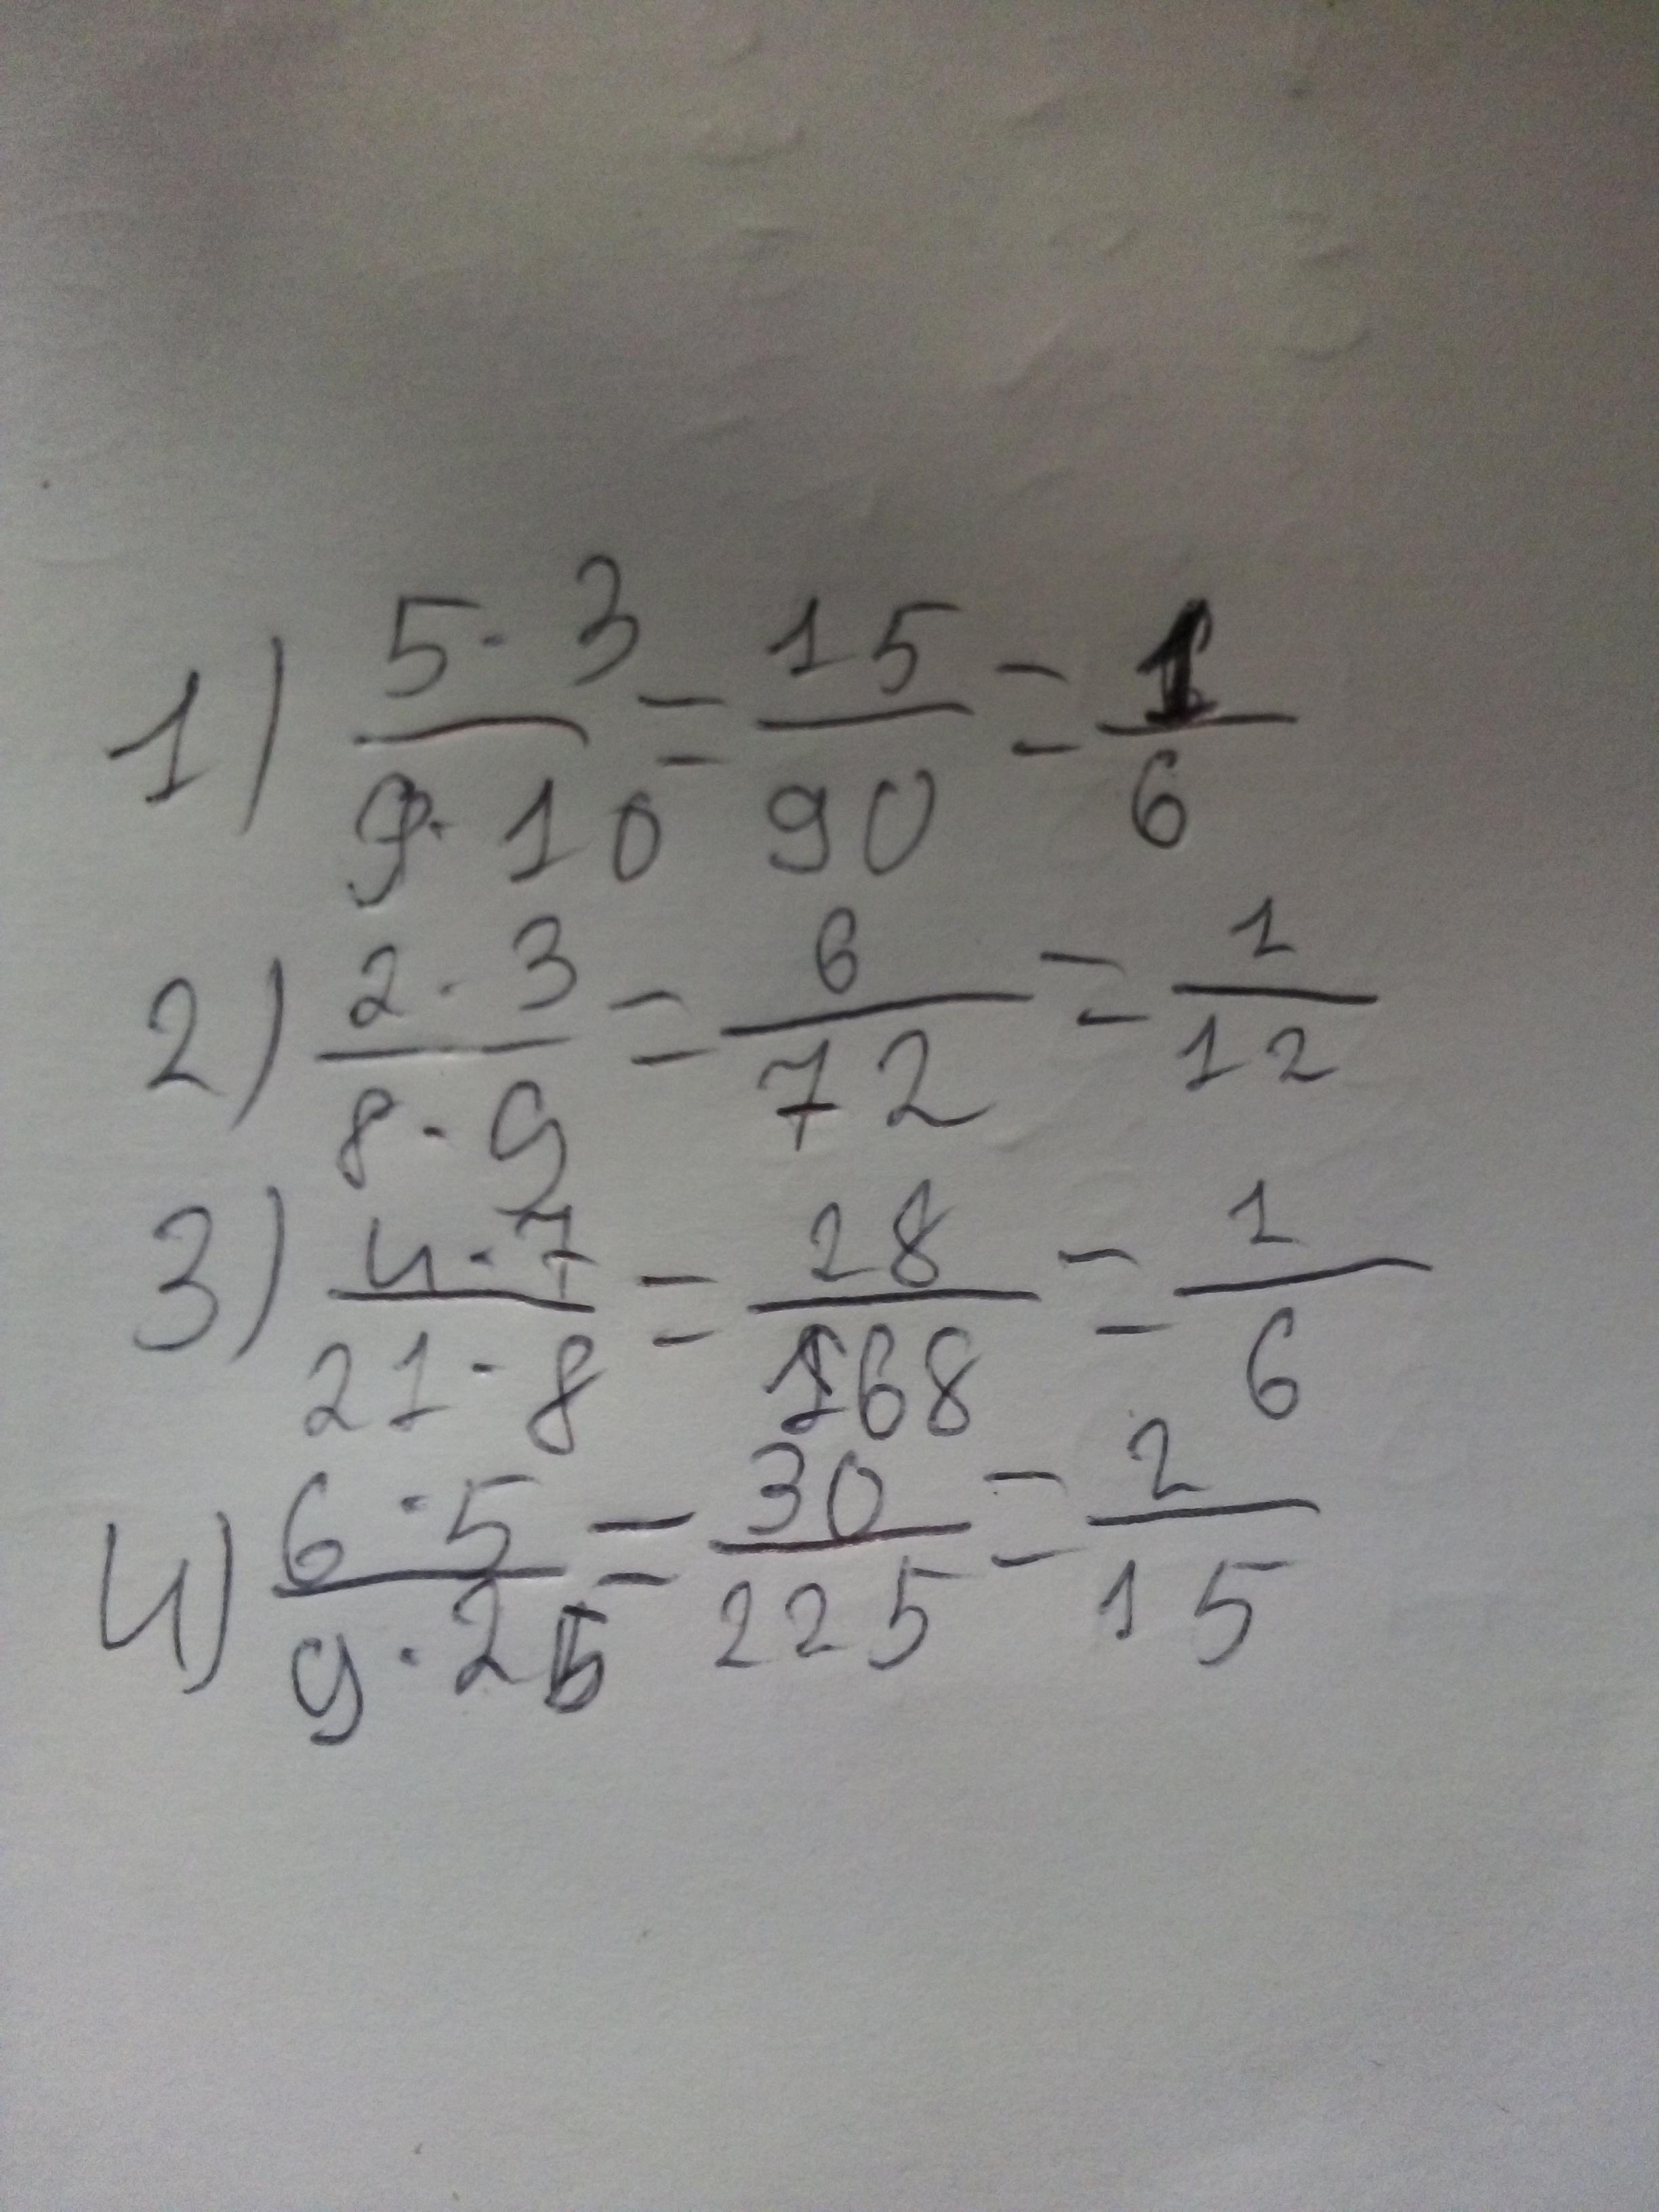 1) 5·3/9·10 = 15/90 = 1/6
2) 2·3/8·9 = 6/72 = 1/12
3) 4·7/21·8 = 28/168 = 1/6
4) 6·5/9·25 = 30/225 = 2/15